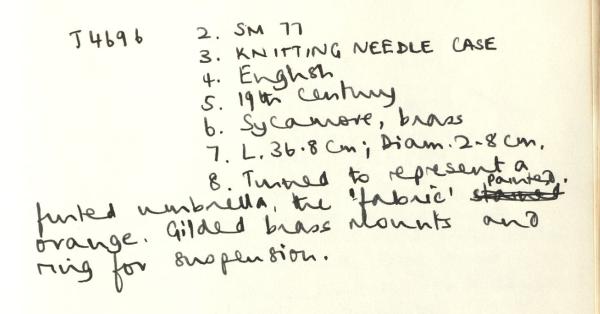 J4696 2. SM 77
3. KNITTING NEEDLE CASE
4. English
5. 19th century
6. Sycamore, brass
7. L. 36.8 cm; Diam. 2.8 cm.
8. Turned to represent a
furled umbrella, the 'fabric' stained painted.
orange. Gilded brass mounts and
ring for suspension.